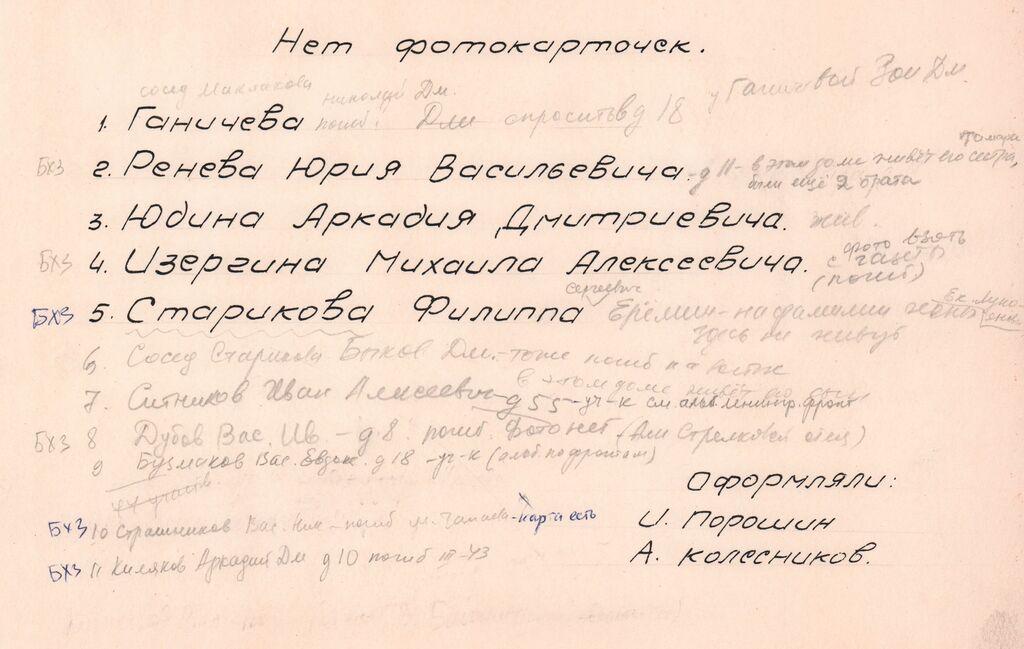 Нет фотокарточек.
сосед Маклакова Николай Дм. у Ганичевой Зои Дм.
1. Ганичева погиб. спросить д 18
БхЗ 2. Ренева Юрия Васильевича. - д 11 - в этом доме живёт его сестра, Тамара
были ещё 2 брата
3. Юдина Аркадия Дмитриевича. жив.
БхЗ 4. Изергина Михаила Алексеевича. фото взять
с газеты
(погиб)
Сергеевич
БхЗ 5. Старикова Филиппа Еремин - на фамилии жены Ек.
здесь не живут
6 Сосед Старикова Быков Дм. - тоже погиб на
7 Ситников Иван Алексеевич в этом доме живёт его
д 55 - уч-к см. альб. Ленингр. фронт
БхЗ 8 Дубов Вас. Ив. - д 8. погиб. Фото нет (Али Стрелковой отец)
9 Бузмаков Вас. Евдок. д 18 - уч-к
БхЗ 10 Страшников Вас. Ник - погиб м. Чапаева - карта есть
БхЗ 11 Киляков Аркадий Дм д 10 погиб III-43
Оформляли:
И. Порошин
А. Колесников.